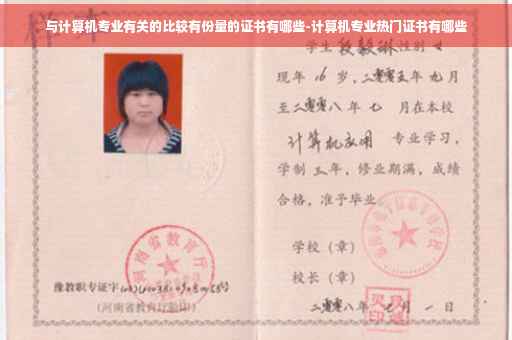 与计算机专业有关的比较有份量的证书有哪些-计算机专业热门证书有哪些
学生 段毅琳 性别 女
现年 16 岁，二零零五年 九月
至二零零八年 七 月在本校
计算机应用 专业学习，
学制 三年，修业期满，成绩
合格，准予毕业
学校（章）
校长（章）
二零零八年 七月 一日
河南省教育厅
豫教职专证字
（河南省教育厅验印）